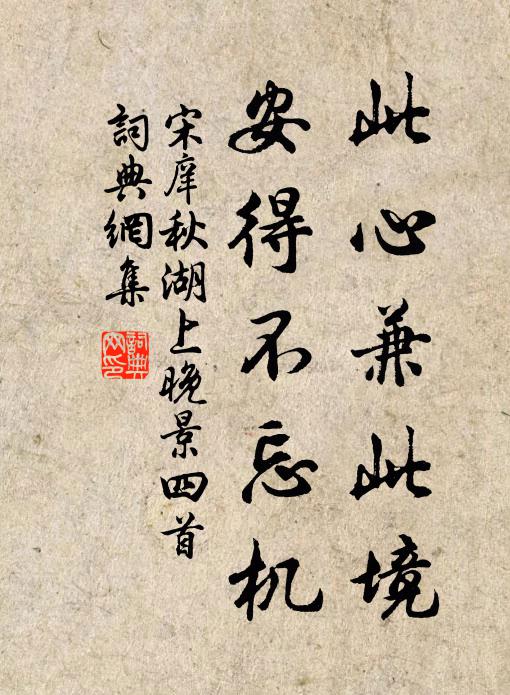 此心兼此境
安得不忘机
宋庠秋湖上晚景四首
詞典網集
詞典网印